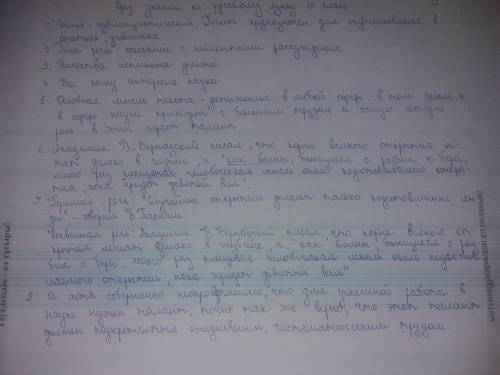 Срез знаний по русскому языку 10 класс
1. Стиль - публицистический. Текст предназначен для опубликования в
учебниках
2. Тип речи - описание с элементами рассуждения.
3. Качества истинных ученых
4. Тем кому интересна наука
5. Основная мысль текста - достижения в любой сфере, в том числе и
в сфере науки приходят с большим трудом и самую малую
роль в этом играет талант
6. Академик В. Вернадский писал, что корни всякого открытия ле-
жат далеко в глубине, и, "как волны, бьющиеся с разбега о берег,
много раз плещется человеческая мысль около подготовляемого откры-
тия, пока придет девятый вал".
7. Прямая речь: "Случайные открытия делают только подготовленные лю-
ди" - говорил Б. Паскаль
Косвенная речь: Академик В. Вернадский писал, что корни всякого от-
крытия лежат далеко в глубине, и, "как волны, бьющиеся с раз-
бега о берег, много раз плещется человеческая мысль около подготов-
ляемого открытия, пока придет девятый вал"
8. И хотя совершенно неопровержимо, что для успешной работы в
науке нужен талант, точно так же верно, что этот талант
должен подкрепляться ежедневным, систематическим трудом.